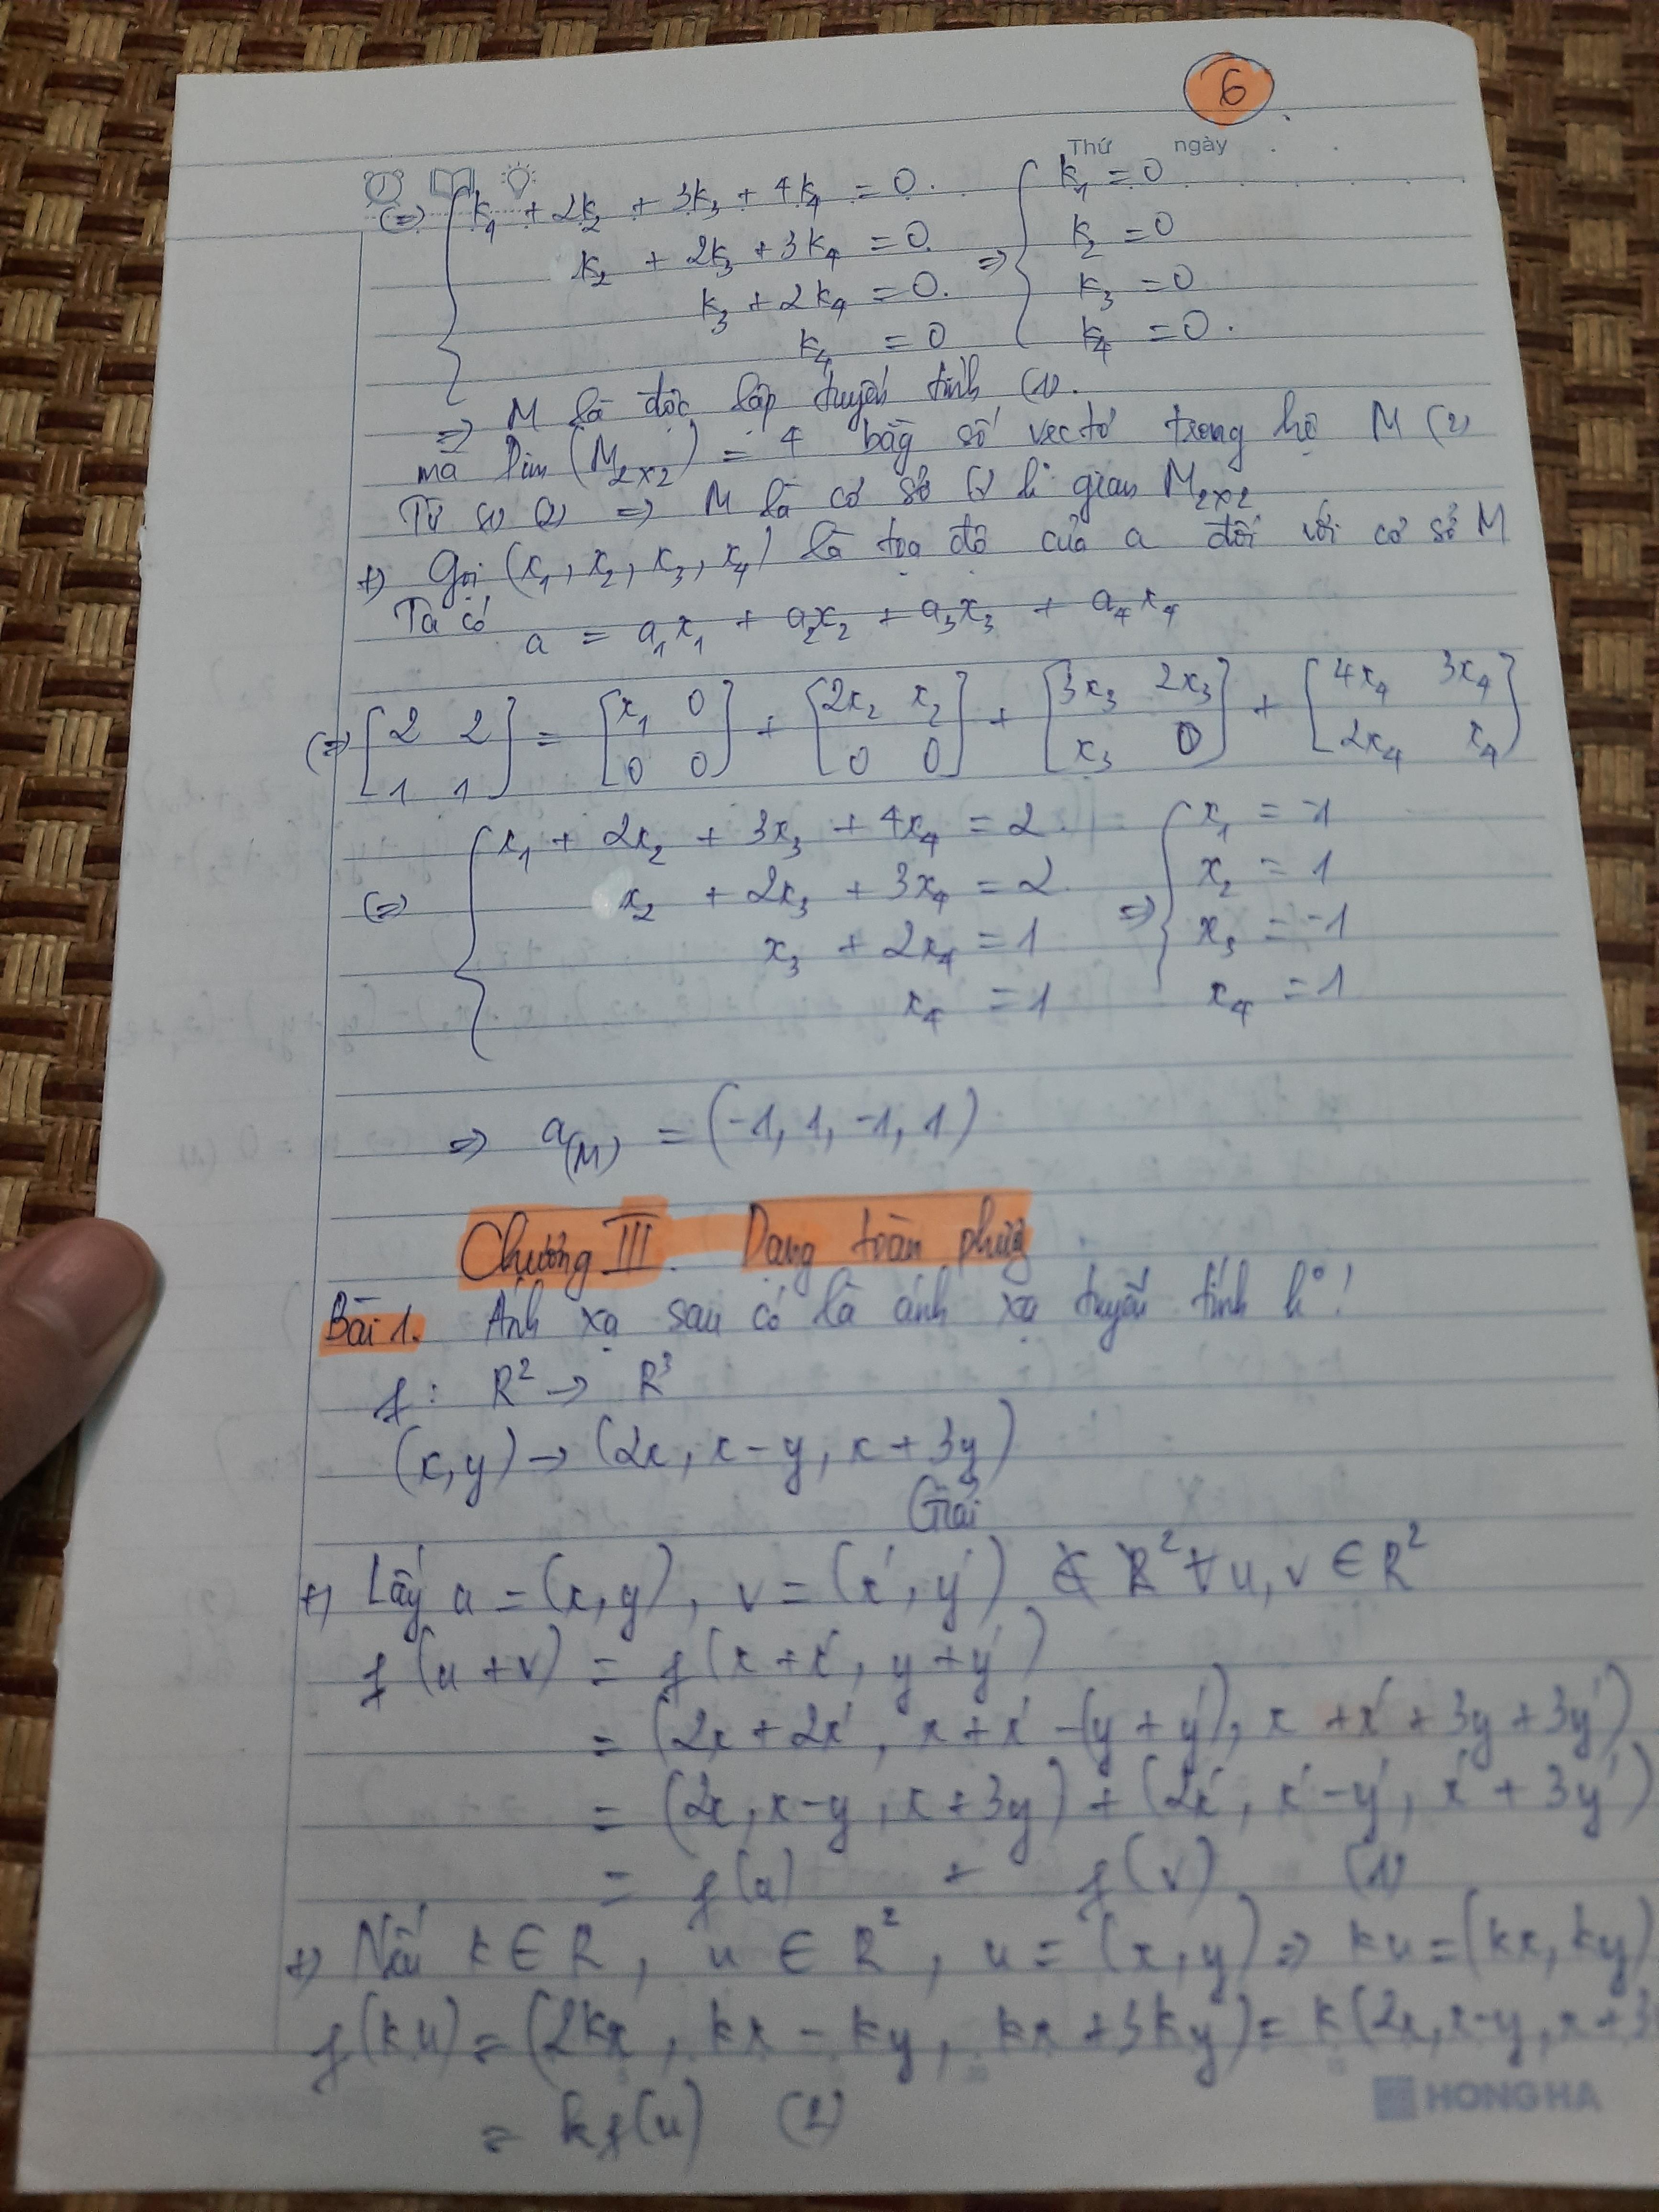 6
Thứ ngày
(=> k₁ + 2k₂ + 3k₃ + 4k₄ = 0. => k₁ = 0
k₂ + 2k₃ + 3k₄ = 0. k₂ = 0
k₃ + 2k₄ = 0. k₃ = 0
k₄ = 0 k₄ = 0.
=> M là độc lập tuyến tính (1).
mà Dim (M₂ₓ₂) = 4 bằg số vectơ trong hệ M (2)
Từ (1) (2) => M là cơ sở k° gian M₂ₓ₂
+) Gọi (x₁, x₂, x₃, x₄) là tọa độ của a đối với cơ sở M
Ta có a = a₁x₁ + a₂x₂ + a₃x₃ + a₄x₄
(=> [2 2; 1 1] = [x₁ 0; 0 0] + [2x₂ x₂; 0 0] + [3x₃ 2x₃; x₃ 0] + [4x₄ 3x₄; 2x₄ x₄]
(=> x₁ + 2x₂ + 3x₃ + 4x₄ = 2. => x₁ = -1
x₂ + 2x₃ + 3x₄ = 2 x₂ = 1
x₃ + 2x₄ = 1 x₃ = -1
x₄ = 1 x₄ = 1
=> a₍M₎ = (-1, 1, -1, 1)
Chương III. Dạng toàn phương
Bài 1. Ánh xạ sau có là ánh xạ tuyến tính k°!
f: R² → R³
(x, y) → (2x, x - y, x + 3y)
Giải
+) Lấy u = (x, y), v = (x', y') ∀ u, v ∈ R²
f(u + v) = f(x + x', y + y')
= (2x + 2x', x + x' - (y + y'), x + x' + 3y + 3y')
= (2x, x - y, x + 3y) + (2x', x' - y', x' + 3y')
= f(u) + f(v) (1)
+) Nếu k ∈ R, u ∈ R², u = (x, y) => ku = (kx, ky)
f(ku) = (2kx, kx - ky, kx + 3ky) = k(2x, x - y, x + 3
= kf(u) (2)
HONG HA